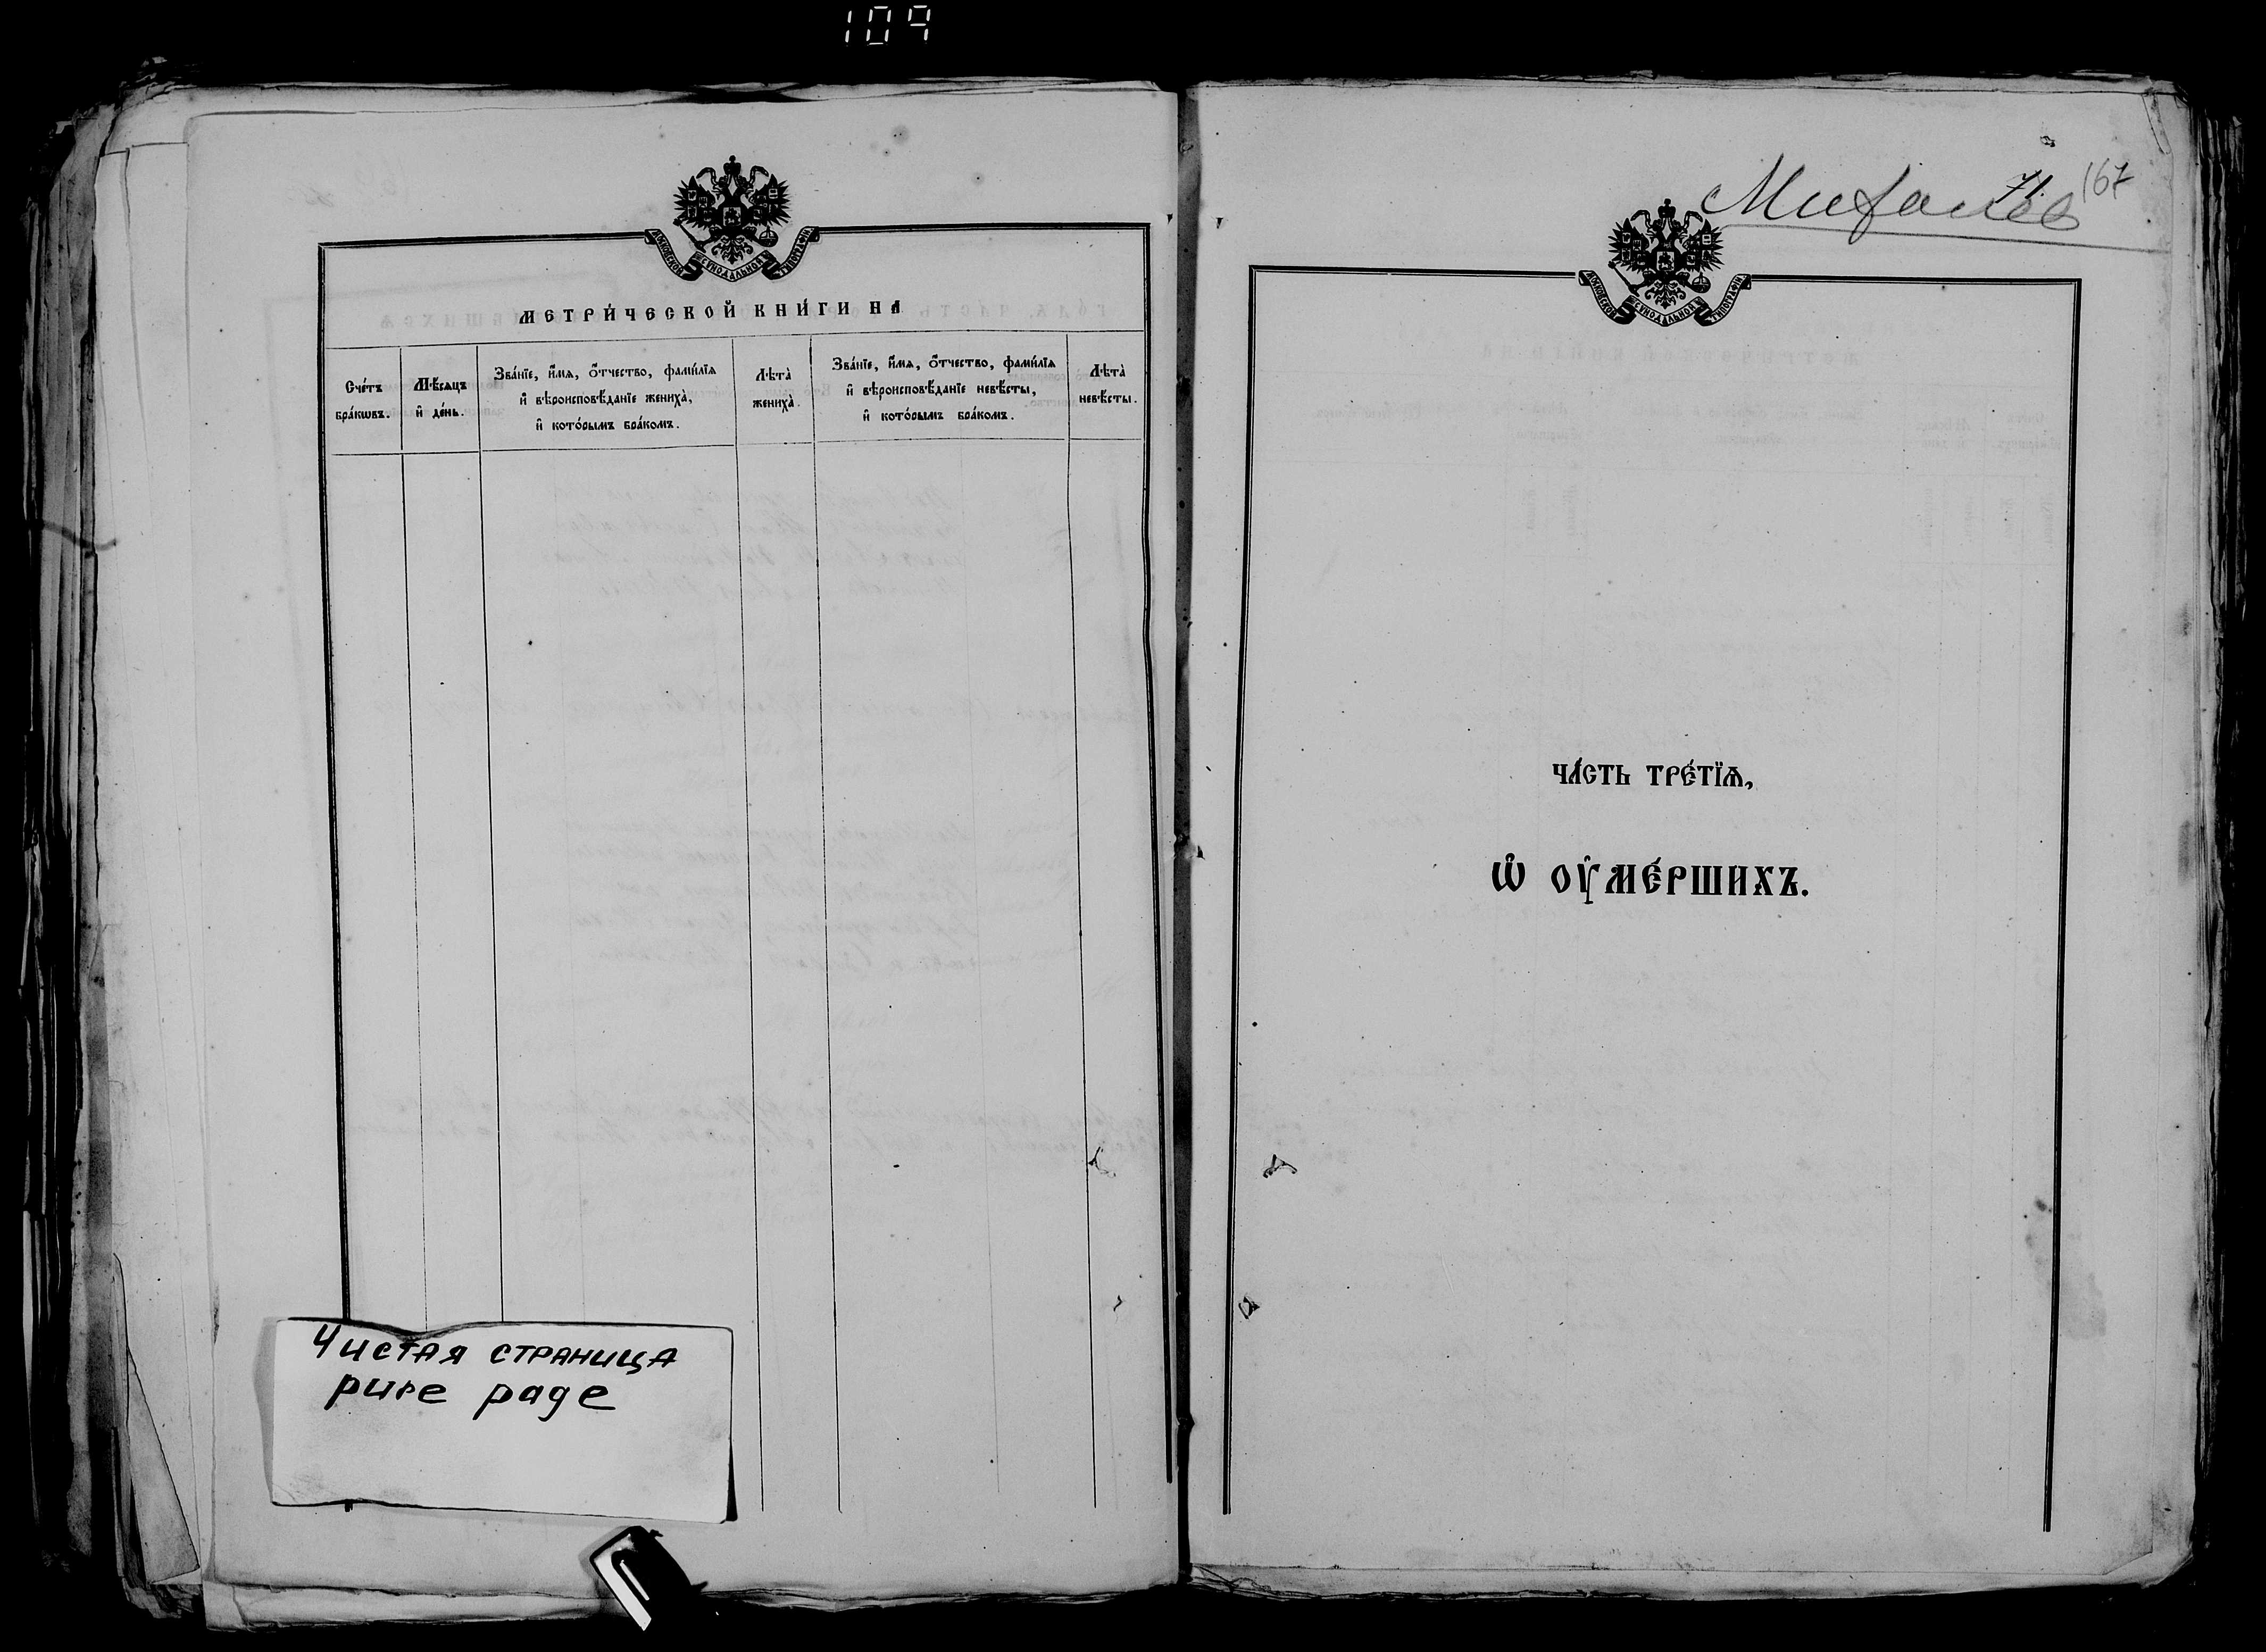 109
МОСКОВСКОЙ СѴНОДАЛЬНОЙ ТИПОГРАФІИ
МЕТРИ́ЧЕСКОЙ КНИ́ГИ НА
Сче́тъ бра́кωвъ.
Мѣ́сяцъ и҆ де́нь.
Зва́нїе, и҆́мѧ, ѻ҆́тчество, фами́лїѧ
и҆ вѣроисповѣ́данїе жениха̀,
и҆ кото́рымъ бра́комъ.
Лѣта̀ жениха̀.
Зва́нїе, и҆́мѧ, ѻ҆́тчество, фами́лїѧ
и҆ вѣроисповѣ́данїе невѣ́сты,
и҆ кото́рымъ бра́комъ.
Лѣта̀ невѣ́сты.
Чистая страница
pure page
71.
167
МОСКОВСКОЙ СѴНОДАЛЬНОЙ ТИПОГРАФІИ
ЧА́СТЬ ТРЕ́ТЇѦ,
Ѡ҆ ОУ҆МЕ́РШИХЪ.